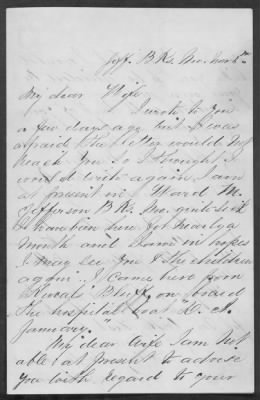 Jeff. B Ks. Mo. Nov 6th
My dear Wife
I wrote to you
a few days ago but I was
afraid the letter would not
reach You so I thought I
would write again. I am
at present in Ward M.
Jefferson B Ks. Mo. quite sick
I have bin here for nearly a
month and I am in hopes
I may see you & the children
again. I came here from
Duvals Bluff on board
the hospital boat "D. A.
January."
My dear wife I am not
able at present to advise
you with regard to your